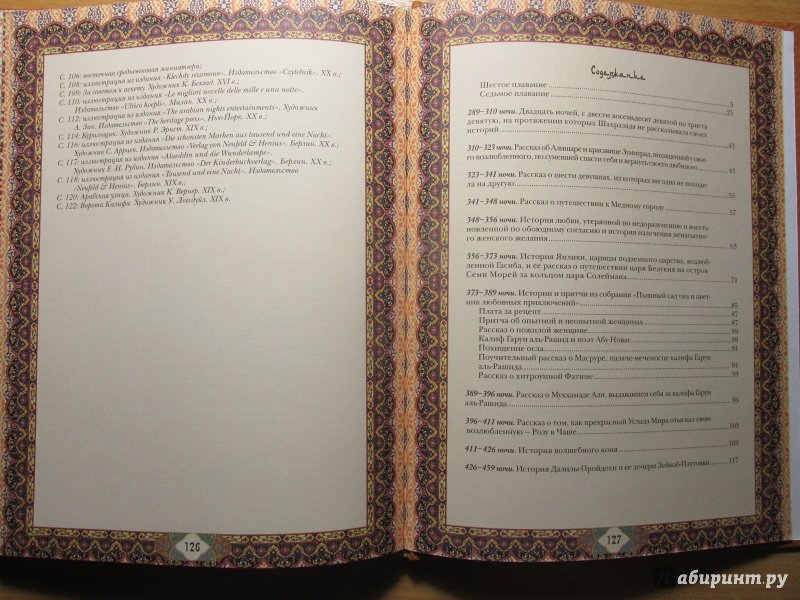 С. 106: восточная средневековая миниатюра;
С. 108: иллюстрация из издания «Klechdy sezamowe». Издательство «Czytelnik». XX в.;
С. 109: За советом к аскету. Художник К. Бехзад. XVI в.;
С. 110: иллюстрация из издания «Le migliori novelle delle mille e una notte».
Издательство «Ulrico hoepli». Милан. XX в.;
С. 112: иллюстрация из издания «The arabian nights entertainments». Художник
А. Зик. Издательство «The heritage press». Нью-Йорк. XX в.;
С. 114: Курильщик. Художник Р. Эрнст. XIX в.;
С. 116: иллюстрация из издания «Die schonsten Marhen aus tausend und eine Nacht».
Художник С. Аррисн. Издательство «Verlag von Neufeld & Henius». Берлин. XX в.;
С. 117: иллюстрация из издания «Alaeddin und die Wunderlampe».
Художник Е. И. Рубин. Издательство «Der Kinderbuchverlag». Берлин. XX в.;
С. 118: иллюстрация из издания «Tausend und eine Nacht». Издательство
«Neufeld & Henius». Берлин. XIX в.;
С. 120: Арабская улица. Художник К. Вернер. XIX в.;
С. 122: Ворота Калифа. Художник У. Логсдуйл. XIX в.
126
Содержание
Шестое плавание 5
Седьмое плавание 25
289–310 ночи. Двадцать ночей, с двести восемьдесят девятой по триста
девятую, на протяжении которых Шахразада не рассказывала своих
историй 43
310–323 ночи. Рассказ об Алишаре и красавице Зуммруд, похищенной у своего
возлюбленного, но сумевшей спасти себя и вернуть своего любимого 43
323–341 ночи. Рассказ о шести девушках, из которых ни одна не походила
на другую 55
341–348 ночи. Рассказ о путешествии к Медному городу 57
348–356 ночи. История любви, утерянной по недоразумению и восстановленной
по обоюдному согласию и история излечения ненасытного
женского желания 63
356–373 ночи. История Ямлики, царицы подземного царства, возлюбленной
Гасиба, и ее рассказ о путешествии царя Белукия на остров
Семи Морей за кольцом царя Солеймана 71
373–389 ночи. Истории и притчи из собрания «Пышный сад ума и цветник
любовных приключений» 85
Плата за рецепт 87
Притча об опытной и неопытной женщинах 87
Рассказ о пожилой женщине 89
Калиф Гарун аль-Рашид и поэт Абу-Новас 89
Похищение осла 91
Поучительный рассказ о Масруре, палаче-меченосце калифа Гарун
аль-Рашида 91
Рассказ о хитроумной Фатиме 93
389–396 ночи. Рассказ о Муххамаде Али, выдававшем себя за калифа Гарун
аль-Рашида 95
396–411 ночи. Рассказ о том, как прекрасный Услада Мира отыскал свою
возлюбленную — Розу в Чаше 105
411–426 ночи. История волшебного коня 109
426–459 ночи. История Далилы-Пройдохи и ее дочери Зейнаб-Плутовки 117
127
Лабиринт.ру